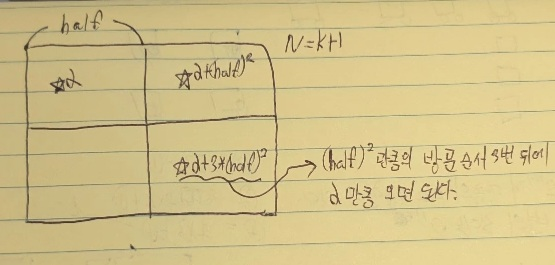 half
N=k+1
☆α
☆α+(half)²
☆α+3*(half)²
(half)² 만큼의 방문 순서 3번 뒤에
α 만큼 오면 된다.